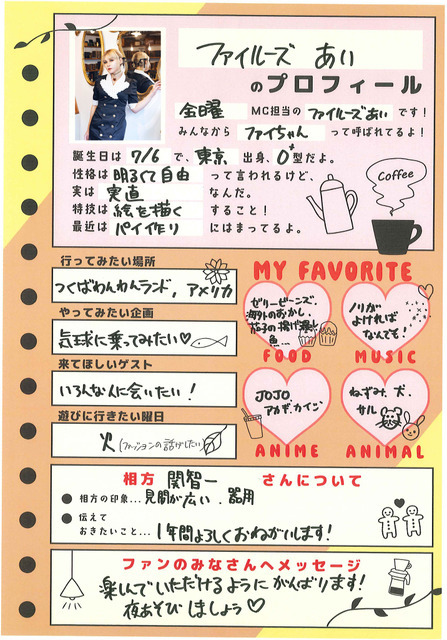 ファイルーズ あい
のプロフィール
金曜 MC担当の ファイルーズあい です！
みんなから ファイちゃん って呼ばれてるよ！
誕生日は 7/6 で、東京 出身、O型だよ。
性格は 明るくて自由 って言われるけど、
実は 実直 なんだ。
特技は 絵を描く すること！
最近は パイ作り にはまってるよ。
Coffee
行ってみたい場所
つくばわんわんランド, アメリカ
やってみたい企画
気球に乗ってみたい♡
来てほしいゲスト
いろんな人に会いたい！
遊びに行きたい曜日
火(ファッションの話がしたい)
MY FAVORITE
ゼリービーンズ、
海外のおかし、
茄子の揚げ浸し
魚…
FOOD
ノリが
よければ
なんでも！
MUSIC
JOJO
アカギ、カイジ
ANIME
ねずみ、犬、
サル
ANIMAL
相方 関智一 さんについて
●相方の印象… 見聞が広い、器用
●伝えて
おきたいこと… 1年間よろしくおねがいします！
ファンのみなさんへメッセージ
楽しんでいただけるようにがんばります！
夜あそびしましょう♡